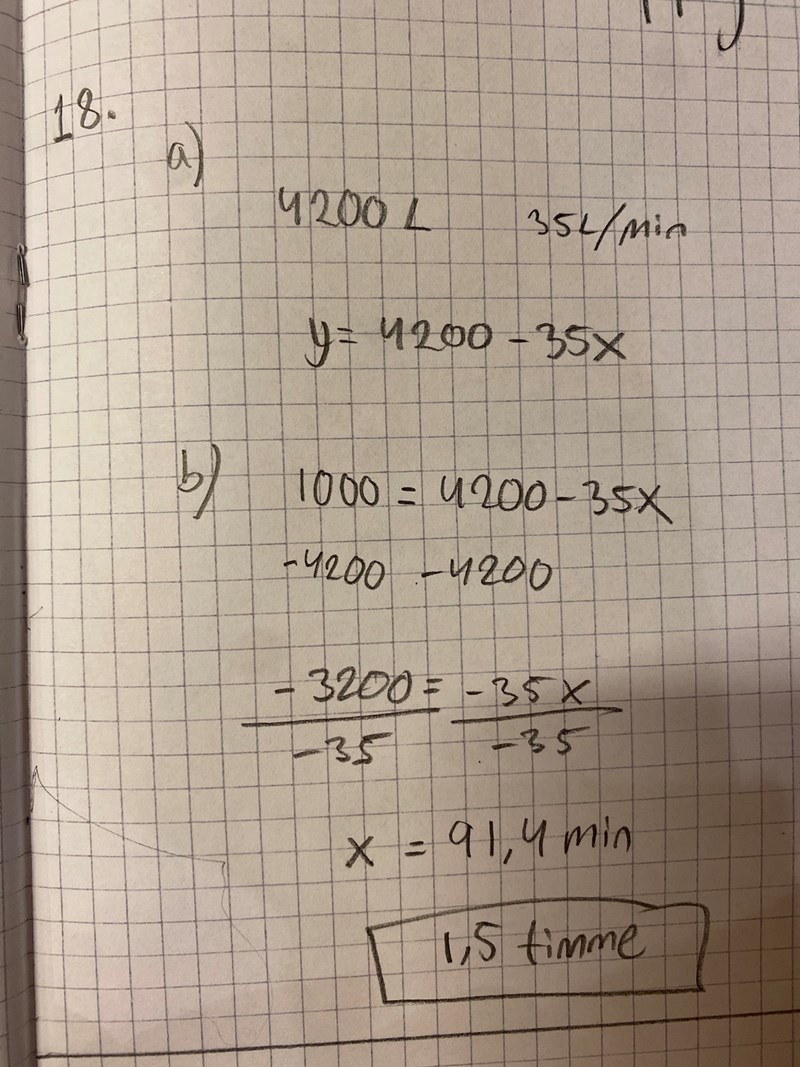 18.
a)
4200 L 35L/min
y = 4200 - 35x
b) 1000 = 4200 - 35x
-4200 -4200
-3200 = -35x
-35 -35
x = 91,4 min
1,5 timme